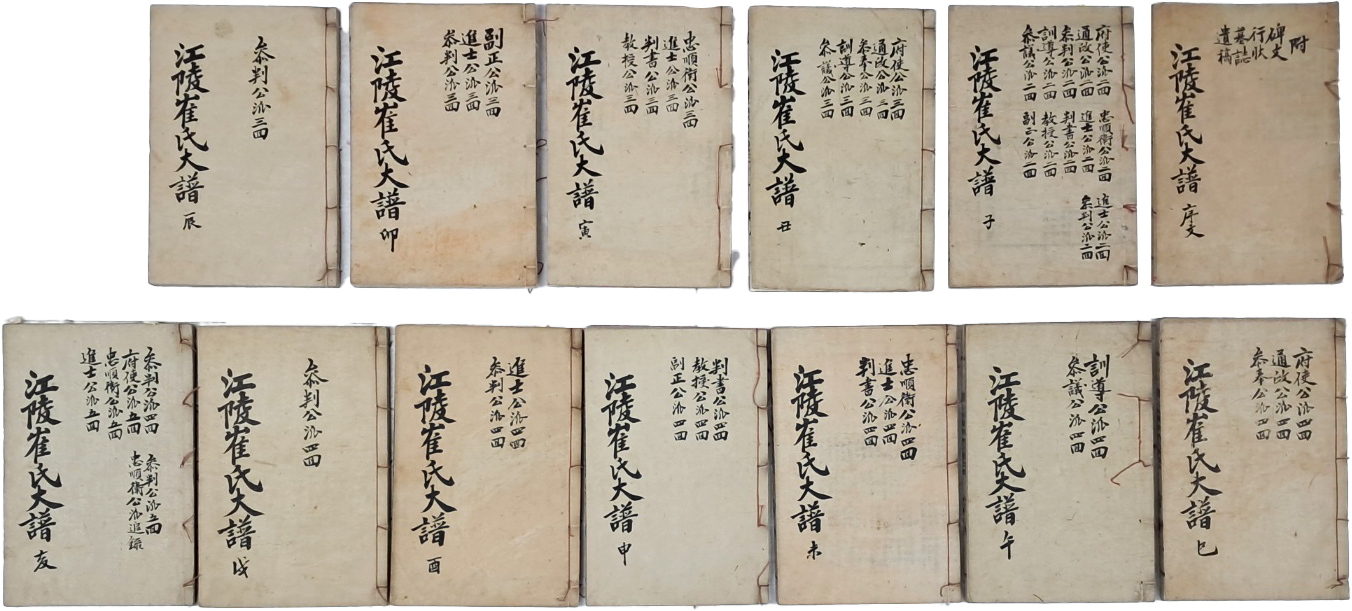 附
碑文
行狀
墓誌
遺稿
江陵崔氏大譜 序文
府使公派二囬
通政公派二囬
叅奉公派二囬
訓導公派二囬
叅議公派二囬
忠順衛公派二囬
進士公派二囬
判書公派二囬
教授公派二囬
副正公派二囬
進士公派二囬
叅判公派二囬
江陵崔氏大譜 子
府使公派三囬
通政公派三囬
叅奉公派三囬
訓導公派三囬
叅議公派三囬
江陵崔氏大譜 丑
忠順衛公派三囬
進士公派三囬
判書公派三囬
教授公派三囬
江陵崔氏大譜 寅
副正公派三囬
進士公派三囬
叅判公派三囬
江陵崔氏大譜 卯
叅判公派三囬
江陵崔氏大譜 辰
府使公派四囬
通政公派四囬
叅奉公派四囬
江陵崔氏大譜 巳
訓導公派四囬
叅議公派四囬
江陵崔氏大譜 午
忠順衛公派四囬
進士公派四囬
判書公派四囬
江陵崔氏大譜 未
判書公派四囬
教授公派四囬
副正公派四囬
江陵崔氏大譜 申
進士公派四囬
叅判公派四囬
江陵崔氏大譜 酉
叅判公派四囬
江陵崔氏大譜 戌
叅判公派四囬
府使公派五囬
忠順衛公派五囬
進士公派五囬
叅判公派五囬
忠順衛公派追錄
江陵崔氏大譜 亥